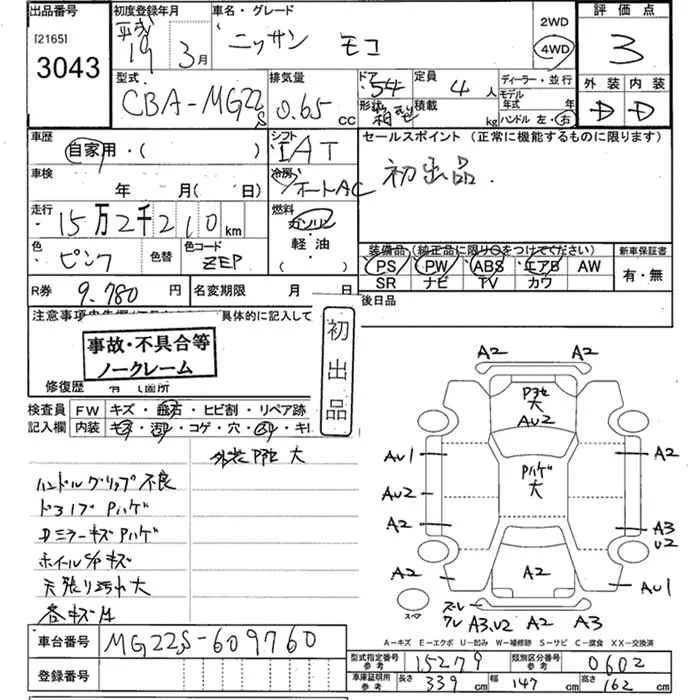 出品番号
[2165]
3043
初度登録年月
平成 19 年 3月
車名・グレード
ニッサン モコ
2WD
4WD
評価点
3
外装 内装
D D
型式
CBA-MG22S
排気量
0.65 CC
ドア
5
定員
4 人
形状
積載
kg
ディーラー・並行
モデル年式 年
ハンドル 左・右
車歴
自家用・( )
シフト
IAT
セールスポイント(正常に機能するものに限ります)
初出品.
車検
年 月( 日)
冷房
オートAC
走行
15万2千210 km
燃料
ガソリン
軽油
( )
色
ピンク
色替
色コード
ZEP
装備品(純正品に限り○をつけてください)
PS PW ABS エアB AW
SR ナビ TV カワ
新車保証書
有・無
R券
9.780 円
名変期限 月 日
後日品
注意事項
具体的に記入して
事故・不具合等
ノークレーム
初出品
修復歴
検査員
記入欄
FW キズ・飛石・ヒビ割・リペア跡
内装 キズ・汚れ・コゲ・穴・
外装Pヤセ 大
ハンドルグリップ不良
ドヨゴブ Pハゲ
Dミラーキズ Pハゲ
ホイールS/Pキズ
天張り汚れ大
各キズ
A2 A2
Pヤセ
大
AU2
AU1
AU2
A2
Pハゲ
大
A2
A3
U2
A2
A2
AU1
スペア
A3.U2 A2 A3
A-キズ E-エクボ U-凹み W-補修跡 S-サビ C-腐食 XX-交換済
車台番号
MG22S-609760
登録番号
型式指定番号
参考
15279
類別区分番号
参考
0602
車庫証明用
参考
長さ 339 cm
幅 147 cm
高さ 162 cm